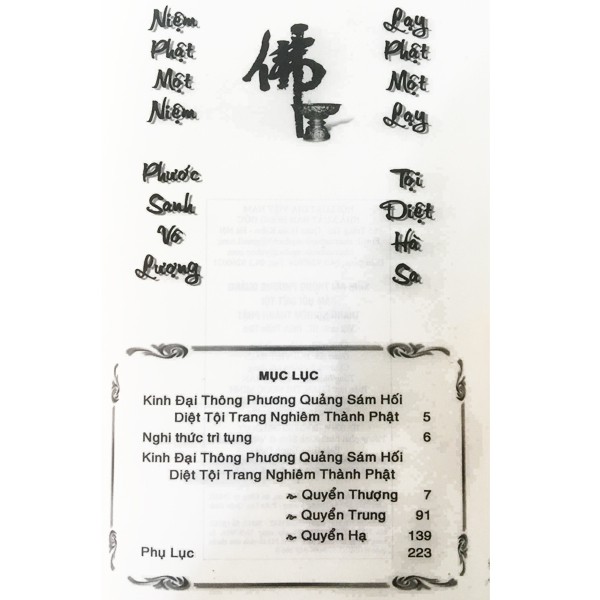 Niệm
Phật
Một
Niệm
Phước
Sanh
Vô
Lượng
佛
Lạy
Phật
Một
Lạy
Tội
Diệt
Hà
Sa
MỤC LỤC
Kinh Đại Thông Phương Quảng Sám Hối
Diệt Tội Trang Nghiêm Thành Phật 5
Nghi thức trì tụng 6
Kinh Đại Thông Phương Quảng Sám Hối
Diệt Tội Trang Nghiêm Thành Phật
Quyển Thượng 7
Quyển Trung 91
Quyển Hạ 139
Phụ Lục 223